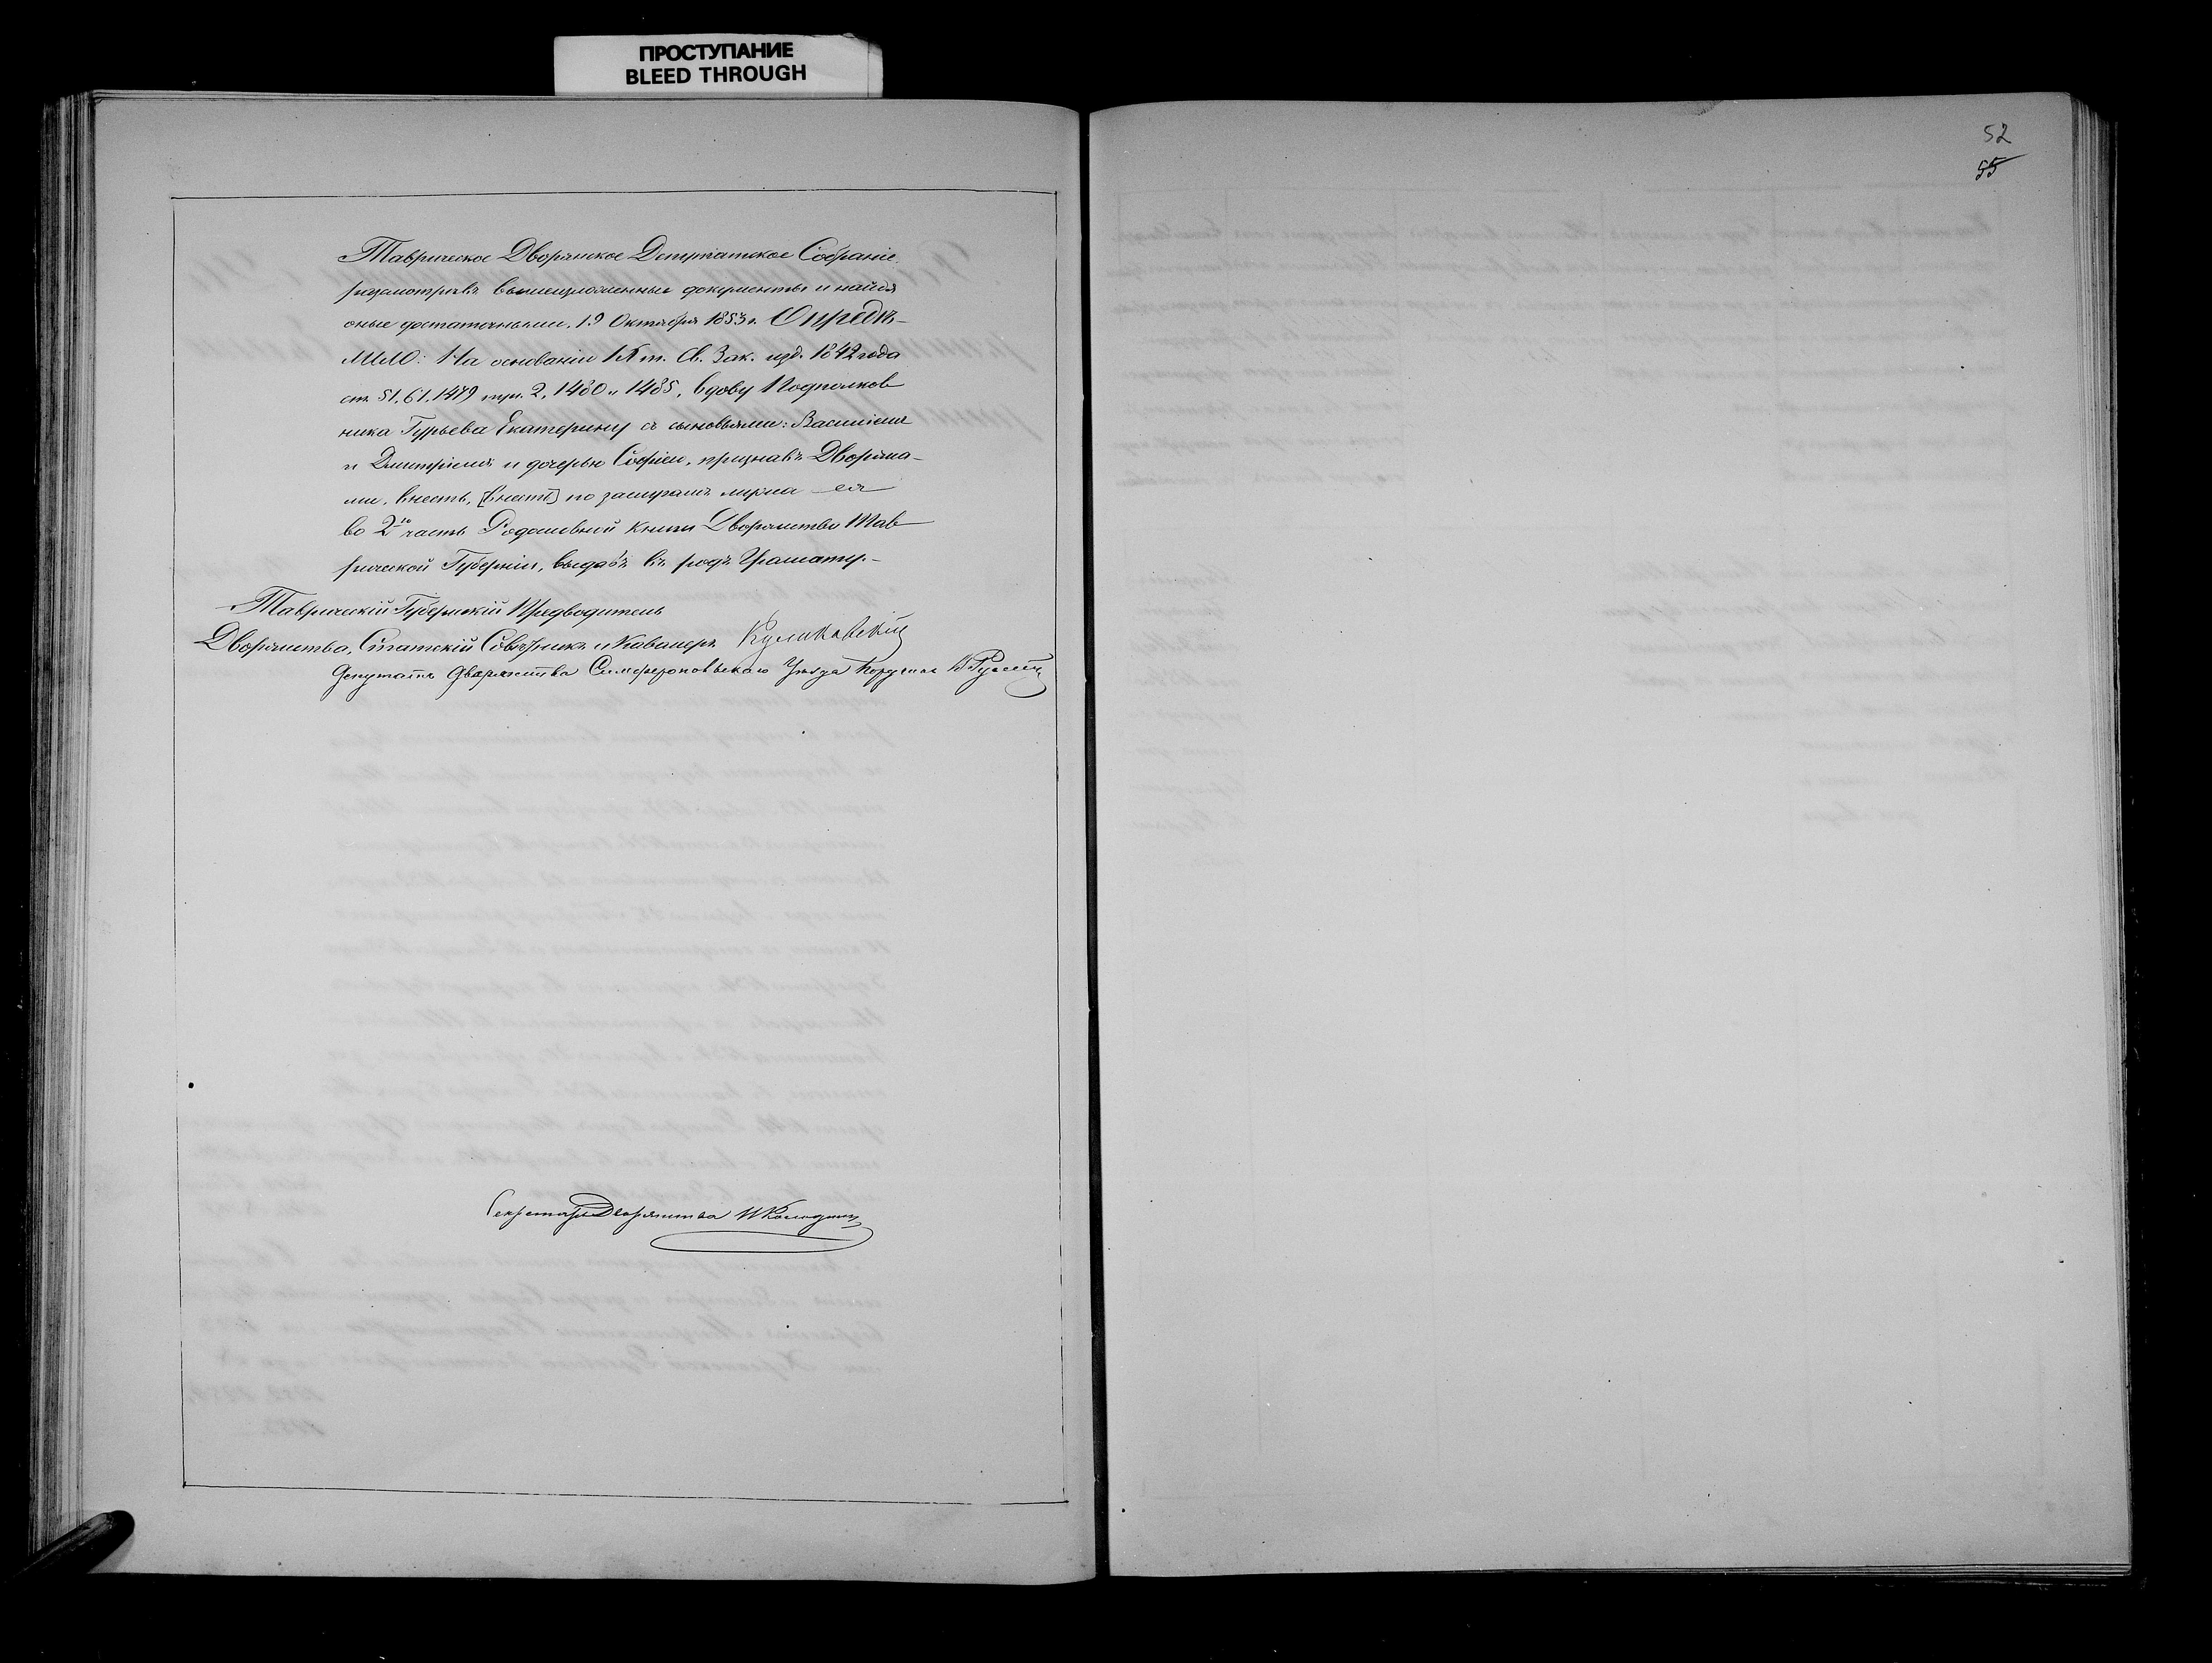 ПРОСТУПАНИЕ
BLEED THROUGH
52
55
Таврическое Дворянское Депутатское Собраніе
разсмотрѣвъ вышеизложенные документы и найдя
оные достаточными, 19 Октября 1853 г. Опредѣ-
лило: На основаніи IX т. Св. Зак. изд. 1842 года
ст. 51, 61, 1479 пун. 2, 1480 и 1485, вдову Подполков
ника Гурьева Екатерину съ сыновьями: Василіемъ
и Дмитріемъ и дочерью Софіею, признавъ Дворяна-
ми, внесть, по заслугамъ мужа ея
во 2ю часть Родословной Книги Дворянства Тав
рической Губерніи, выдавъ въ родъ Грамату.-
Таврическій Губернскій Предводитель
Дворянства, Статскій Совѣтникъ и Кавалеръ
Депутатъ Дворянства Симферопольскаго Уѣзда Поручикъ
Секретарь Дворянства